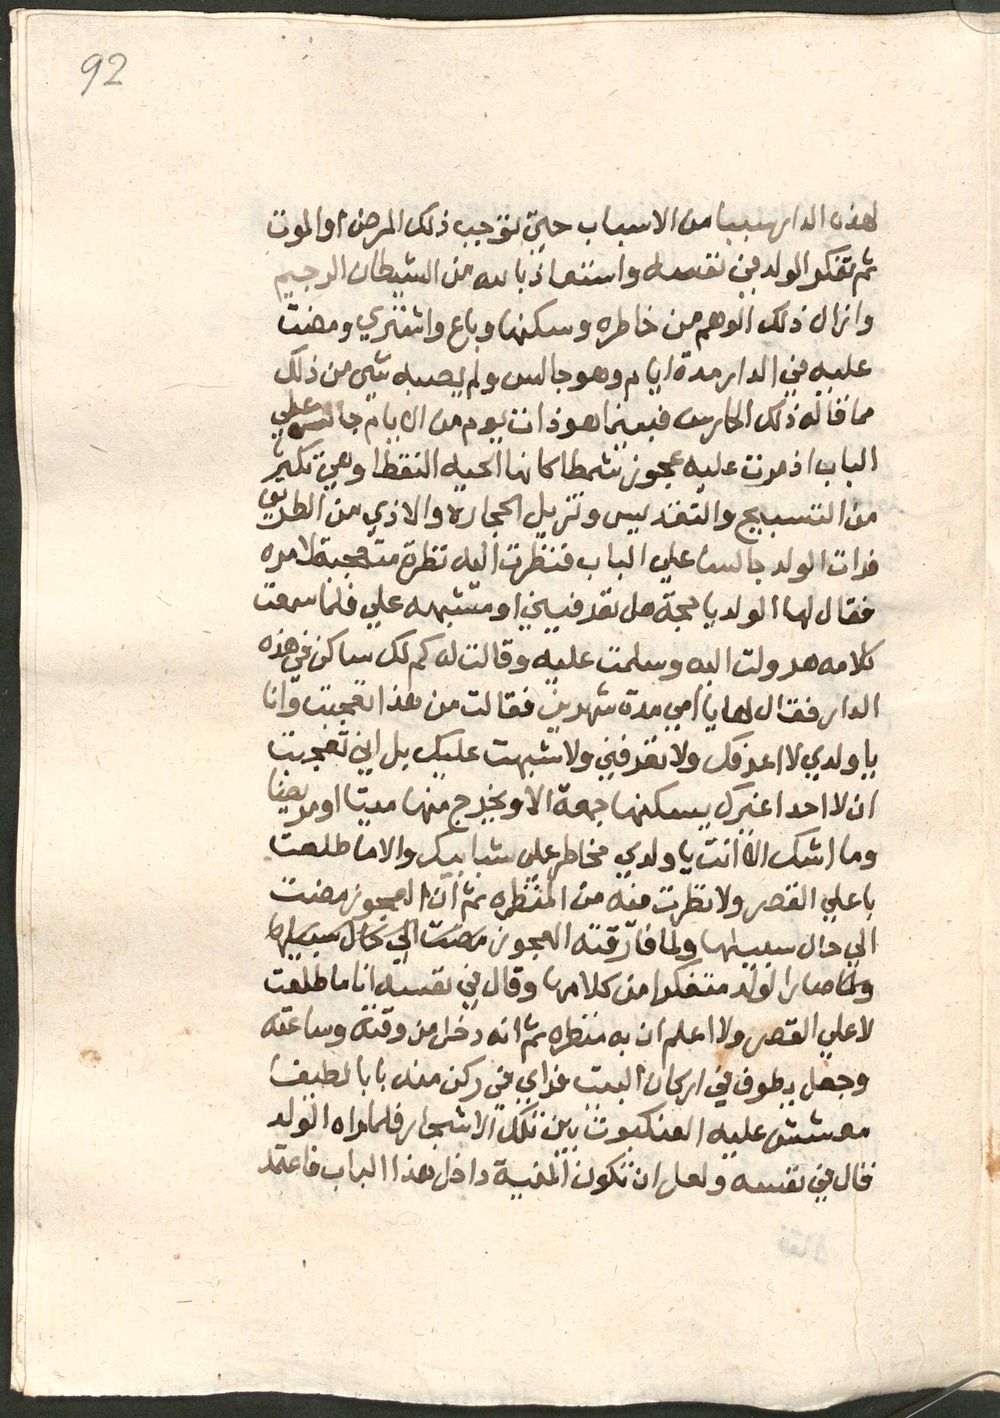 92
لهذه الدار سببا من الاسباب حتي توجب ذلك المرض او الموت
ثم تفكر الولد في نفسه واستعاذ بالله من الشيطان الرجيم
وازال ذلك الوهم من خاطره وسكنها وباع واشتري ومضت
عليه في الدار مدة ايام وهو جالس ولم يصبه شي من ذلك
مما قاله ذلك الحارس فبينما هو ذات يوم من الايام جالس علي
الباب اذ مرت عليه عجوز شمطا كانها الحيه النقطا وهي تكثر
من التسبيح والتقديس وتزيل الحجاره والاذي من الطريق
فرات الولد جالسا علي الباب فنظرت اليه نظرة متعجبة لامره
فقال لها الولد يا عجة هل تعرفيني او مشبهه علي فلما سمعت
كلامه هرولت اليه وسلمت عليه وقالت له كم لك ساكن في هذه
الدار فقال لها يا امي مدة شهرين فقالت من هذا تعجبت وانا
يا ولدي لا اعرفك ولا تعرفني ولا شبهت عليك بل اني تعجبت
ان لا احدا غيرك يسكنها جمعة الا ويخرج منها ميتا او مريضا
وما اشك الا انت يا ولدي مخاطر علي شبابيك والا ما طلعت
باعلي القصر ولا نظرت منه من المنظره ثم ان العجوز مضت
الي حال سبيلها ولما فارقته العجوز مضت الي حال سبيلها
ولما صار الولد متفكرا من كلامها وقال في نفسه انا ما طلعت
لاعلي القصر ولا اعلم ان به منظره ثم انه دخل من وقته وساعته
وجعل يطوف في اركان البيت فراي في ركن منه بابا لطيفا
معشش عليه العنكبوت بين تلك الاشجار فلما راه الولد
قال في نفسه ولعل ان تكون المنية داخل هذا الباب فاعتمد